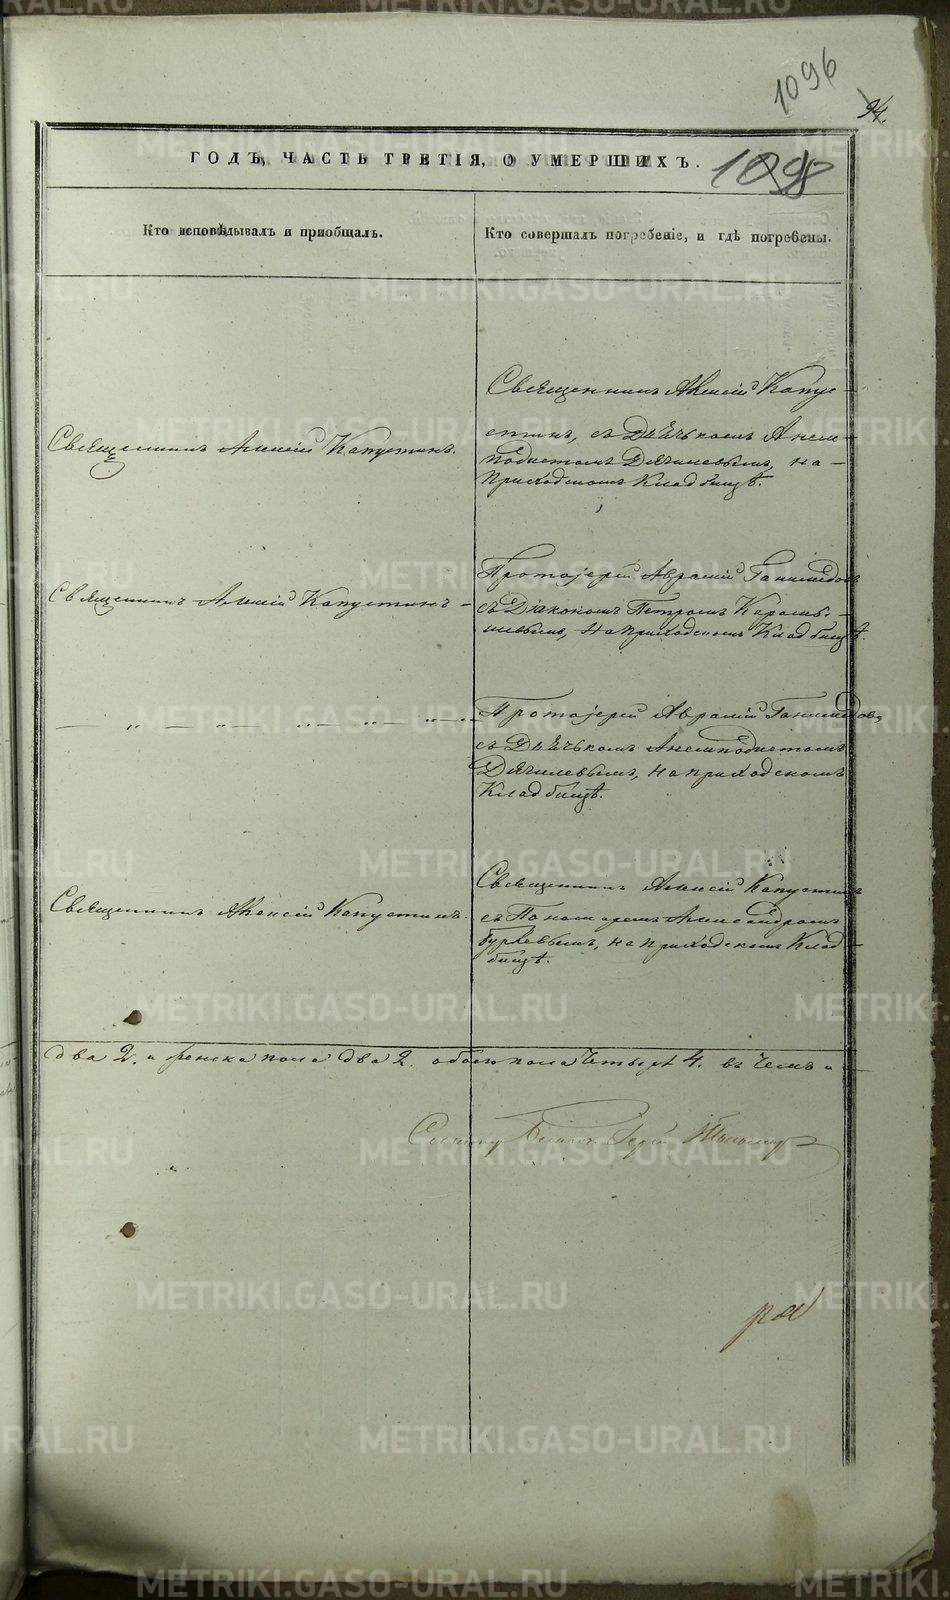 1096
94.
ГОДЪ, ЧАСТЬ ТРЕТІЯ, О УМЕРШИХЪ.
1098
Кто исповѣдывалъ и пріобщалъ.
Кто совершалъ погребеніе, и гдѣ погребены.
Священникъ Алексій Капустинъ.
Священникъ Алексій Капус-
тинъ, съ Дьячькомъ Анем-
подистомъ Дягилевымъ, на
приходскомъ Кладбищѣ.
Священникъ Алексій Капустинъ
Протоіерей Аврамій Ганимедовъ
съ Діакономъ Петромъ
на приходскомъ Кладбищѣ.
— „ — „ — „ — „ — „
Протоіерей Аврамій Ганимедовъ,
съ Дьячькомъ Анемподистомъ
Дягилевымъ, на приходскомъ
Кладбищѣ.
Священникъ Алексій Капустинъ.
Священникъ Алексій Капустинъ
съ Пономаремъ Александромъ
на приходскомъ Клад-
бищѣ.
два 2. и женска пола два 2. обоего пола четыре 4. въ чемъ и
METRIKI.GASO-URAL.RU